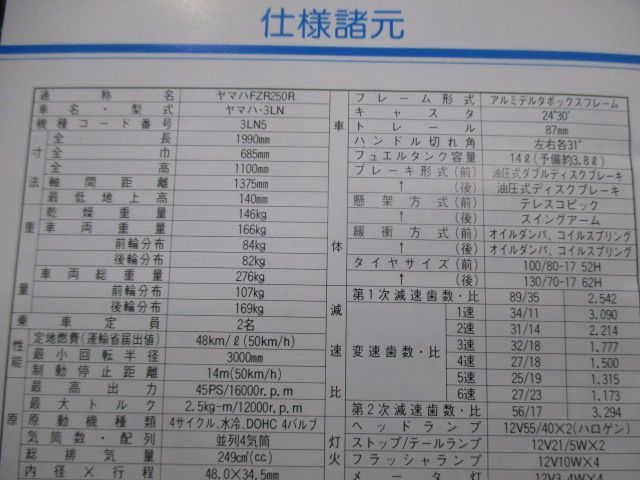 仕様諸元
通称名 ヤマハFZR250R
車名・型式 ヤマハ・3LN
機種コード番号 3LN5
寸法
全長 1990mm
全巾 685mm
全高 1100mm
軸間距離 1375mm
最低地上高 140mm
重量
乾燥重量 146kg
車両重量 166kg
前輪分布 84kg
後輪分布 82kg
車両総重量 276kg
前輪分布 107kg
後輪分布 169kg
乗車定員 2名
性能
定地燃費(運輸省届出値) 48km/ℓ(50km/h)
最小回転半径 3000mm
制動停止距離 14m(50km/h)
最高出力 45PS/16000r.p.m
最大トルク 2.5kg-m/12000r.p.m
原
原動機種類 4サイクル、水冷、DOHC 4バルブ
気筒数・配列 並列4気筒
総排気量 249cm³(c.c.)
内径×行程 48.0×34.5mm
車体
フレーム形式 アルミデルタボックスフレーム
キャスタ 24°30′
トレール 87mm
ハンドル切れ角 左右各31°
フュエルタンク容量 14ℓ(予備約3.8ℓ)
ブレーキ形式(前) 油圧式ダブルディスクブレーキ
↑(後) 油圧式ディスクブレーキ
懸架方式(前) テレスコピック
↑(後) スイングアーム
緩衝方式(前) オイルダンパ、コイルスプリング
↑(後) オイルダンパ、コイルスプリング
タイヤサイズ(前) 100/80-17 52H
↑(後) 130/70-17 62H
減速比
第1次減速歯数・比 89/35 2.542
変速歯数・比
1速 34/11 3.090
2速 31/14 2.214
3速 32/18 1.777
4速 27/18 1.500
5速 25/19 1.315
6速 27/23 1.173
第2次減速歯数・比 56/17 3.294
灯火
ヘッドランプ 12V55/40×2(ハロゲン)
ストップ/テールランプ 12V21/5W×2
フラッシャランプ 12V10W×4
メータ灯 12V3.4W×4